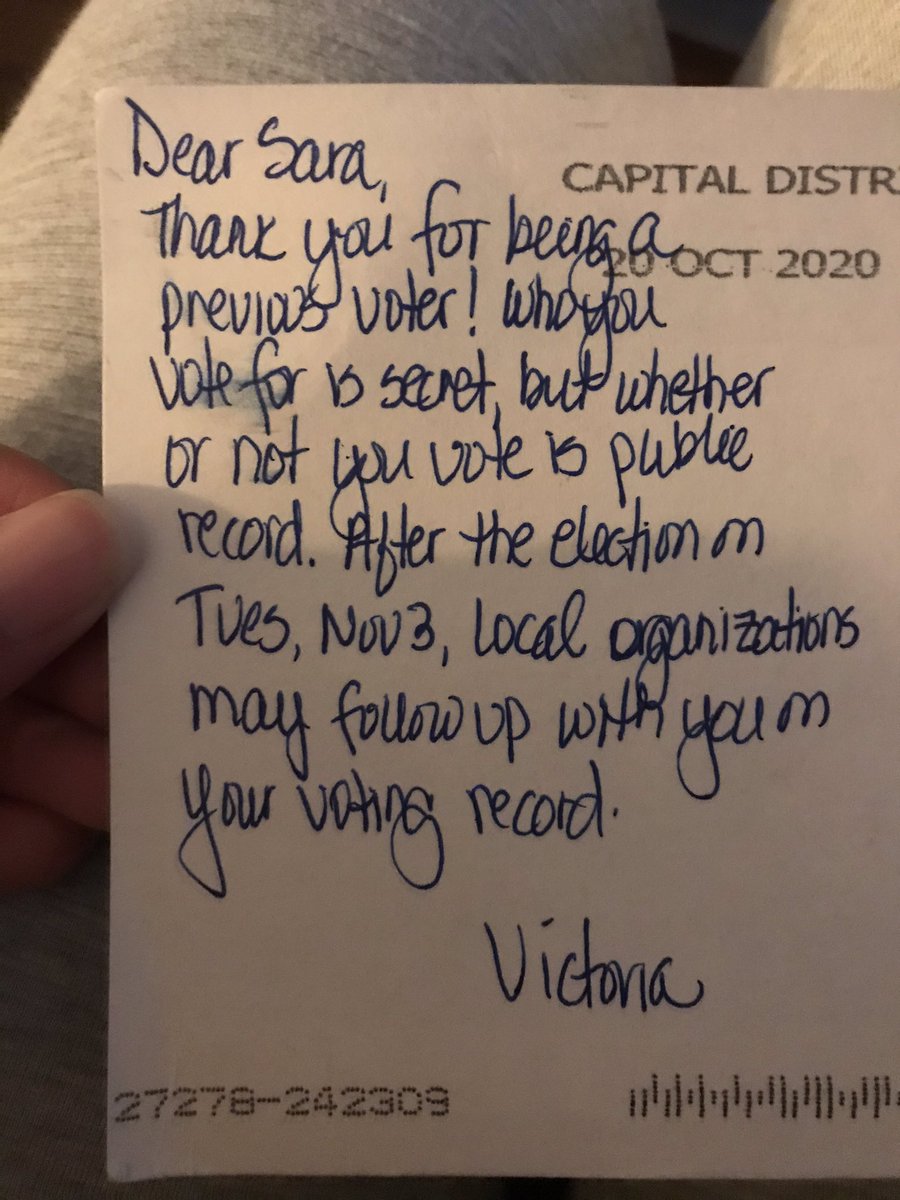 Dear Sara,
CAPITAL DISTR
Thank you for being a
20 OCT 2020
previous voter! Who you
vote for is secret, but whether
or not you vote is public
record. After the election on
Tues, Nov 3, local organizations
may follow up with you on
your voting record.
Victoria
27278-242309